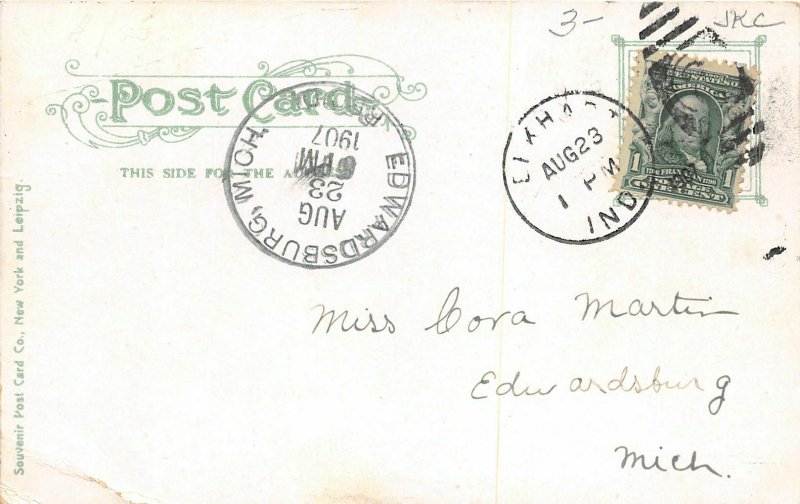 3-
JKC
Post Card
THIS SIDE FOR THE ADDRESS
EDWARDSBURG, MICH.
AUG
23
6 PM
1907
REC'D
ELKHART
AUG 23
1 PM
IND
UNITED STATES OF
AMERICA
1706 FRANKLIN 1790
1
ONE CENT
Miss Cora Martin
Edwardsburg
Mich.
Souvenir Post Card Co., New York and Leipzig.